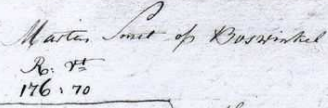 Marten Smit op Boswinkel
R: rt
176: 70